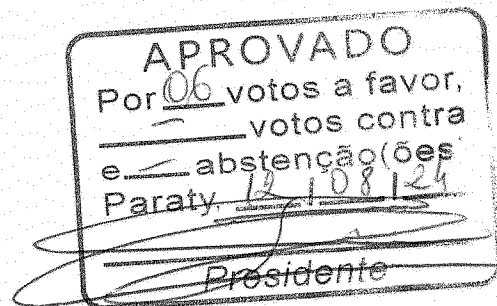 APROVADO
Por 06 votos a favor,
— votos contra
e — abstenção(ões
Paraty, 12 / 08 / 24
Presidente